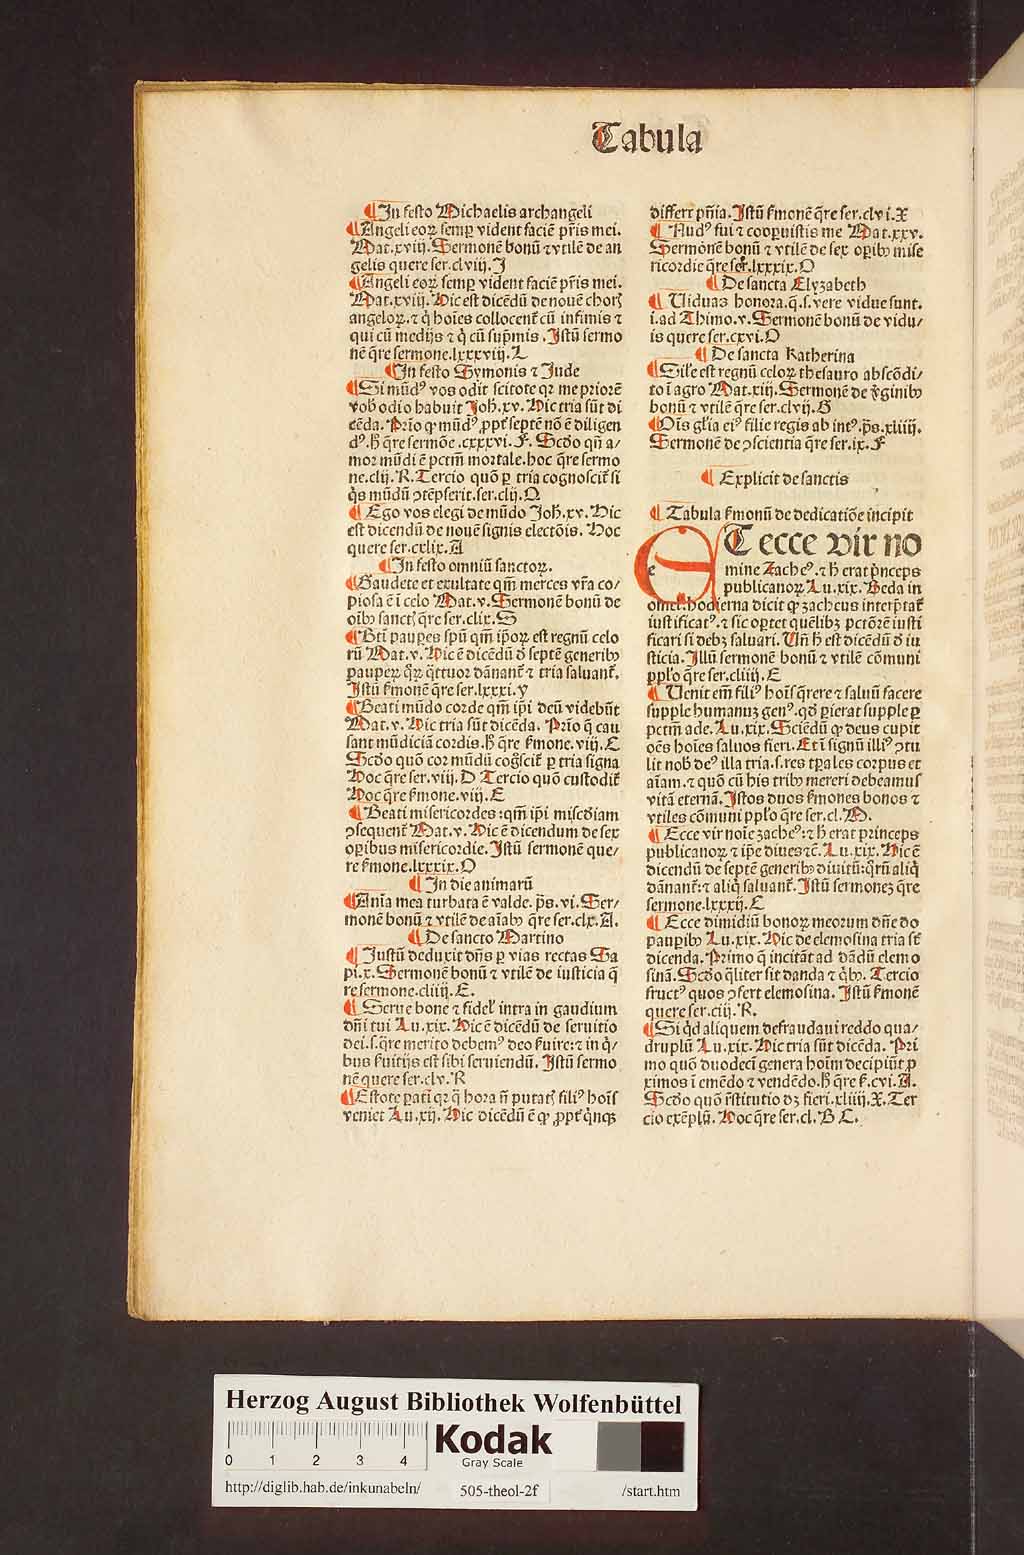 Tabula
¶ In festo Michaelis archangeli
¶ Angeli eoꝝ semꝑ vident faciē pr̄is mei.
Mat.xviij. Sermonē bonū ⁊ vtilē de an
gelis quere ser.clviij. I
¶ Angeli eoꝝ semꝑ vident faciē pr̄is mei.
Mat.xviij. Hic est dicēdū de nouē choꝝ
angeloꝝ. ⁊ q̇ hoīes collocent̃ cū infimis ⁊
qui cū medijs ⁊ q̇ cū sup̄mis. Istū sermo
nē q̄re sermone.lxxxviij. L
¶ In festo Symonis ⁊ Jude
¶ Si mūdꝰ vos odit scitote qꝛ me priorē
vob̄ odio habuit Joh̄.xv. Hic tria sūt di
cēda. Prīo ꝙ mūdꝰ ꝓpt̃ septē nō ē diligen
dꝰ. h̄ q̄re sermōe.cxxxvi. F. Scd̄o qn̄ a/
mor mūdi ē pctm̄ mortale. hoc q̄re sermo
ne.clij. R. Tercio quō ꝑ tria cognoscit̃ si
q̇s mūdū ꝯtēpserit. ser.clij. Q
¶ Ego vos elegi de mūdo Joh̄.xv. Hic
est dicendū de nouē signis electōis. Hoc
quere ser.cxlix. A
¶ In festo omniū sanctoꝝ.
¶ Gaudete et exultate qm̄ merces vr̄a co/
piosa ē ī celo Mat.v. Sermonē bonū de
oībꝰ sanctꝭ q̄re ser.clix. S
¶ Bt̄i pauꝑes spū qm̄ ip̄oꝝ est regnū celo
rū Mat.v. Hic ē dicēdū d̄ septē generibꝰ
pauperꝝ q̄ꝝ q̄ttuor dānant̃ ⁊ tria saluant̃.
Istū s̃monē q̄re ser.lxxxi. V
¶ Beati mūdo corde qm̄ ip̄i deū videbūt
Mat.v. Hic tria sūt dicēda. Prīo q̄ cau
sant mūdiciā cordis. h̄ q̄re s̃mone.viij. C
Scd̄o quō cor mūdū cog̃scit̃ ꝑ tria signa
Hoc q̄re ser.viij. D Tercio quō custodit̃
Hoc q̄re s̃mone.viij. E
¶ Beati misericordes: qm̄ ip̄i mīscd̄iam
ꝯsequent̃ Mat.v. Hic ē dicendum de sex
oꝑibus misericordie. Istū sermonē que/
re s̃mone.lxxxix. O
¶ In die animarū
¶ Anīa mea turbata ē valde. ps̄.vi. Ser/
monē bonū ⁊ vtilē de aīabꝰ q̄re ser.clx. A.
¶ De sancto Martino
¶ Justū deduxit dn̄s ꝑ vias rectas Sa
pi.x. Sermonē bonū ⁊ vtilē de iusticia q̄
re sermone.cliiij. E.
¶ Serue bone ⁊ fidelꝭ intra in gaudium
dn̄i tui Lu.xix. Hic ē dicēdū de seruitio
dei. s. q̄re merito debemꝰ deo s̃uire: ⁊ in q̇/
bus s̃uitijs est sibi seruiendū. Istū sermo
nē quere ser.clv. R
¶ Estote ꝑati qꝛ q̄ hora n̄ putatꝭ filiꝰ hoīs
veniet Lu.xij. Hic dicēdū ē ꝙ ꝓpt̃ q̇nqꝫ
differt pn̄ia. Istū s̃monē q̄re ser.clvi. X
¶ Nudꝰ fui ⁊ cooꝑuistis me Mat.xxv.
Sermonē bonū ⁊ vtilē de sex oꝑibꝰ mise
ricordie q̄re ser.lxxxix. O
¶ De sancta Elyzabeth
¶ Uiduas honora. q. s. vere vidue sunt.
i. ad Thimo.v. Sermonē bonū de vidu/
is quere ser.cxvi. O
¶ De sancta Katherina
¶ Sil'e est regnū celoꝝ thesauro abscōdi/
to ī agro Mat.xiij. Sermonē de v̇ginibꝰ
bonū ⁊ vtilē q̄re ser.clvij. G
¶ Oīs gl'ia eiꝰ filie regis ab intꝰ. ps̄.xliiij.
Sermonē de ꝯscientia q̄re ser.ix. F
¶ Explicit de sanctis
¶ Tabula s̃monū de dedicatiōe incipit
ET ecce vir no
mine Zacheꝰ. ⁊ h̄ erat p̄nceps
publicanoꝝ Lu.xix. Beda in
omel. hodierna dicit ꝙ zacheus interp̄tat̃
iustificatꝰ. ⁊ sic oꝑtet quēlibꝫ pctōrē iusti
ficari si debꝫ saluari. Un̄ h̄ est dicēdū d̄ iu
sticia. Illū sermonē bonū ⁊ vtilē cōmuni
ꝓplo q̄re ser.cliiij. E
¶ Uenit em̄ filiꝰ hoīs q̄rere ⁊ saluū facere
supple humanuꝫ genꝰ. qd̄ ꝑierat supple ꝑ
pctm̄ ade. Lu.xix. Sciēdū ꝙ deus cupit
oēs hoīes saluos fieri. Et ī signū illiꝰ ꝯtu
lit nob̄ deꝰ illa tria. s. res tp̄ales corpus et
aīam. ⁊ quō cū his tribꝰ mereri debeamus
vitā eternā. Istos duos s̃mones bonos ⁊
vtiles cōmuni pplo q̄re ser.cl. M.
¶ Ecce vir noīe zacheꝰ: ⁊ h̄ erat princeps
publicanoꝝ ⁊ ip̄e diues ⁊c̄. Lu.xix. Hic ē
dicendū de septē generibꝰ diuitū: q̄rū aliq̇
dānant̃: ⁊ aliq̇ saluant̃. Istū sermoneꝫ q̄re
sermone.lxxxij. C
¶ Ecce dimidiū bonoꝝ meorum dn̄e do
pauꝑibꝰ Lu.xix. Hic de elemosina tria st̄
dicenda. Primo q̄ incitāt ad dādū elemo
sinā. Scd̄o q̄liter sit danda ⁊ q̇bꝰ. Tercio
fructꝰ quos ꝯfert elemosina. Istū s̃monē
quere ser.ciij. R.
¶ Si qd̄ aliquem defraudaui reddo qua/
druplū Lu.xix. Hic tria sūt dicēda. Pri
mo quō duodecī genera hoīm decipiūt ꝓ
ximos ī emēdo ⁊ vendēdo. h̄ q̄re s̃.cvi. A.
Scd̄o quō r̄stitutio dꝫ fieri.xliiij. X. Ter
cio exēplū. Hoc q̄re ser.cl. B C.
e
Herzog August Bibliothek Wolfenbüttel
0 1 2 3 4
Kodak
Gray Scale
http://diglib.hab.de/inkunabeln/ 505-theol-2f /start.htm